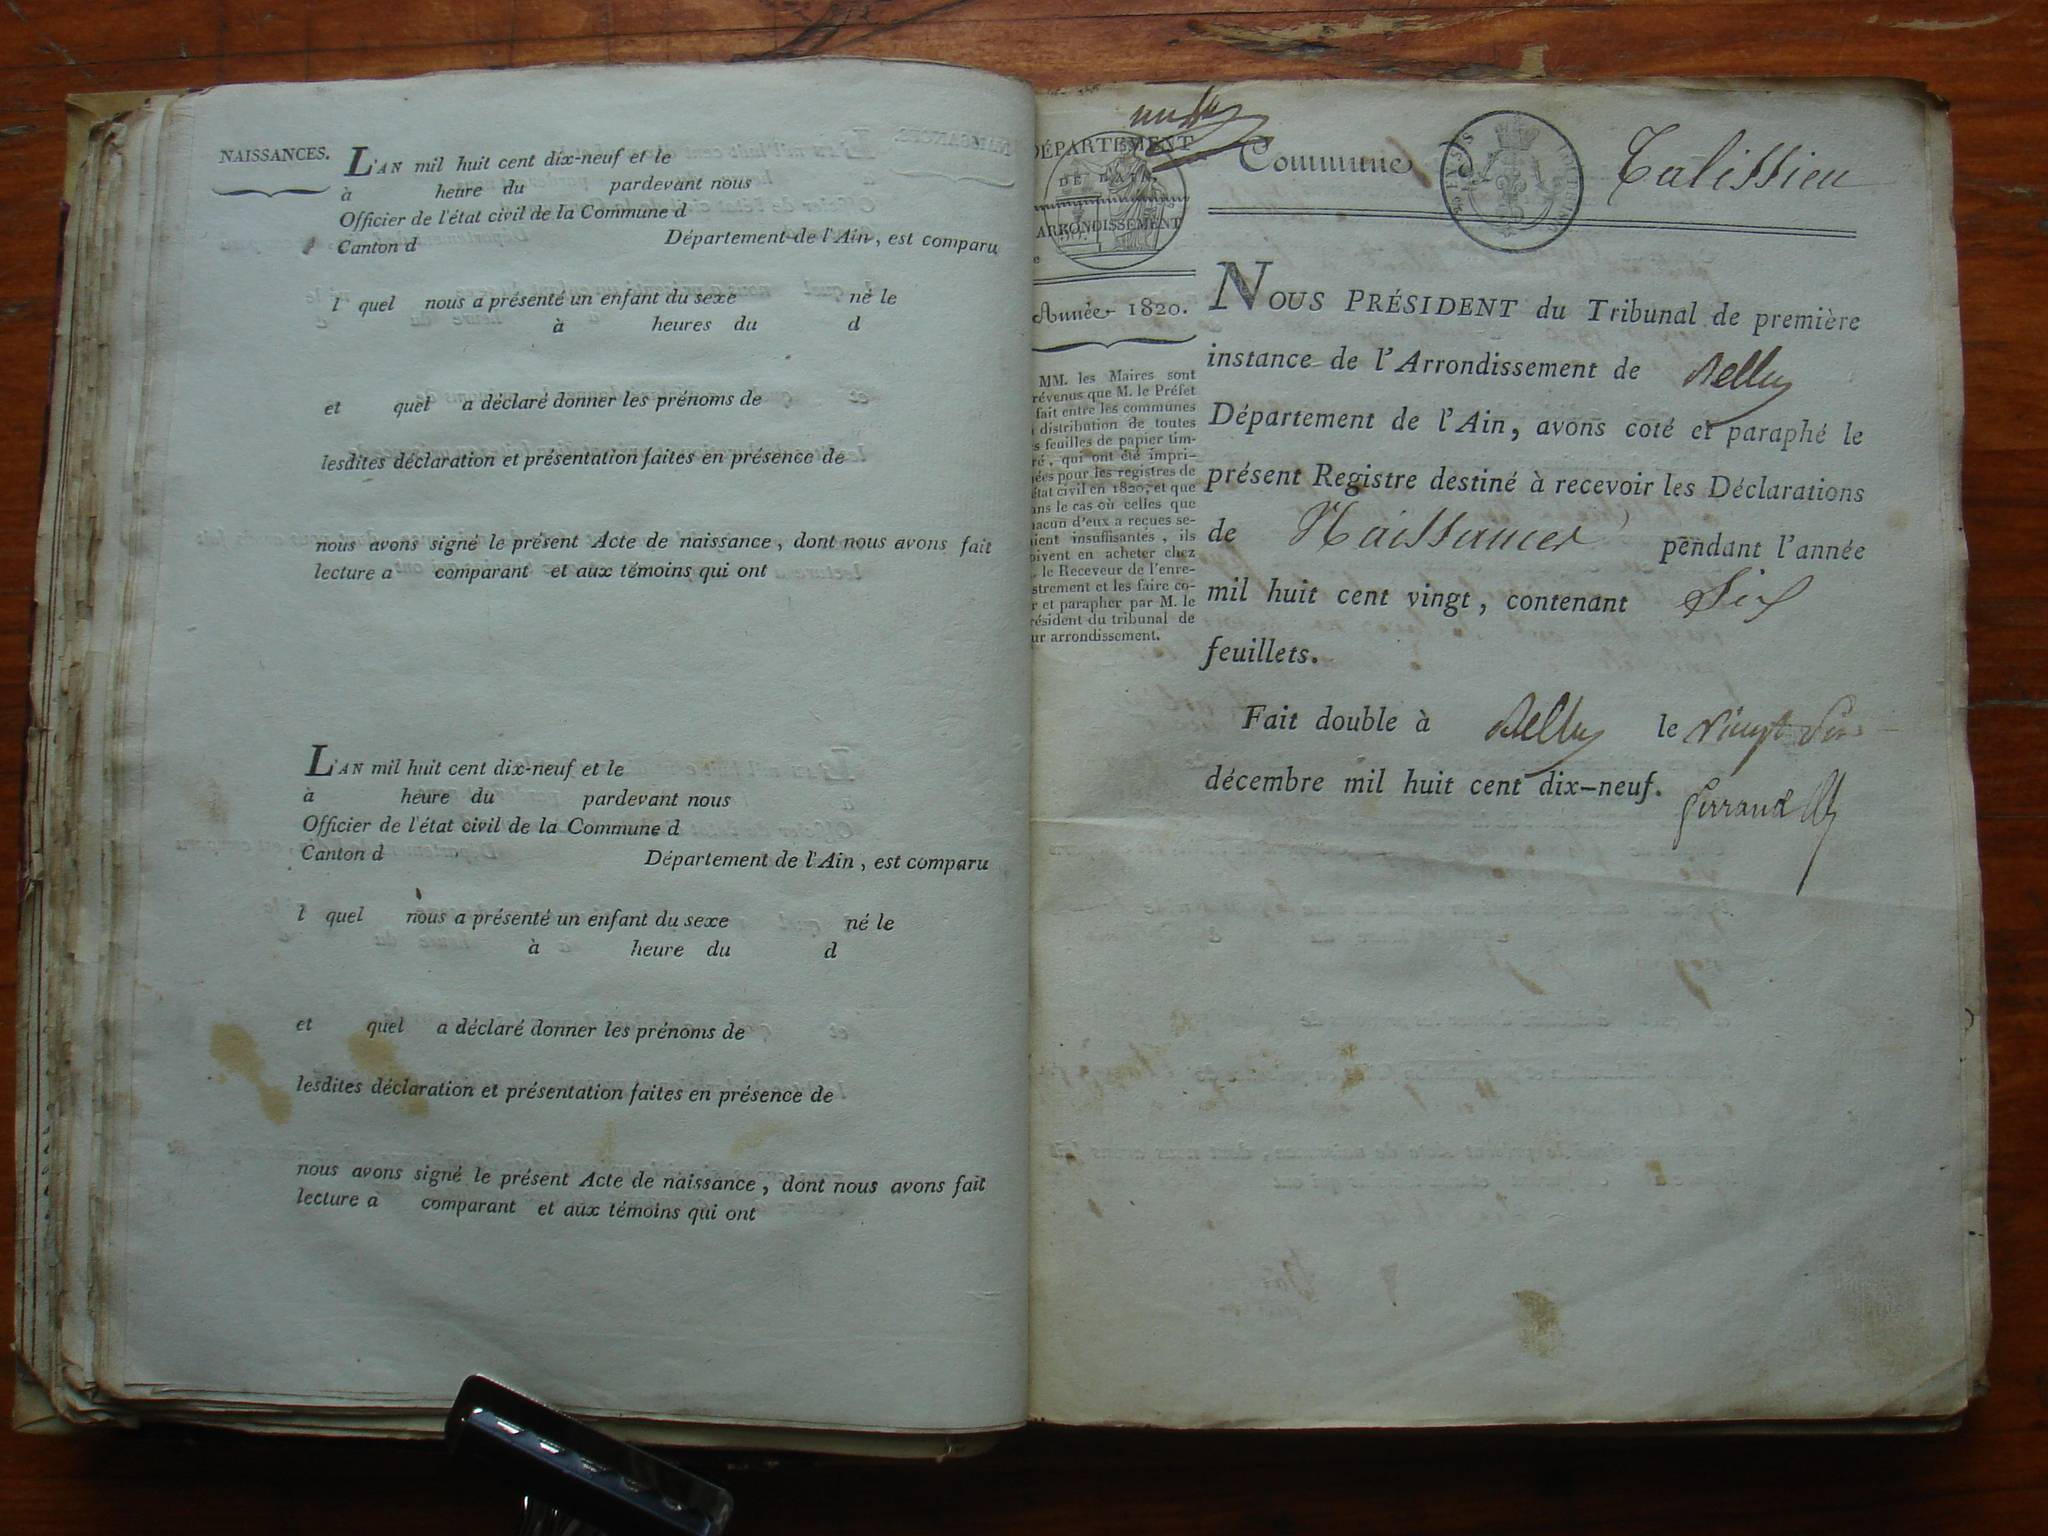 NAISSANCES.
L'AN mil huit cent dix-neuf et le
à heure du pardevant nous
Officier de l'état civil de la Commune d
Canton d Département de l'Ain, est comparu
l quel nous a présenté un enfant du sexe né le
à heures du d
et quel a déclaré donner les prénoms de
lesdites déclaration et présentation faites en présence de
nous avons signé le présent Acte de naissance, dont nous avons fait
lecture a comparant et aux témoins qui ont
L'AN mil huit cent dix-neuf et le
à heure du pardevant nous
Officier de l'état civil de la Commune d
Canton d Département de l'Ain, est comparu
l quel nous a présenté un enfant du sexe né le
à heure du d
et quel a déclaré donner les prénoms de
lesdites déclaration et présentation faites en présence de
nous avons signé le présent Acte de naissance, dont nous avons fait
lecture a comparant et aux témoins qui ont
DÉPARTEMENT
DE L'AIN.
ARRONDISSEMENT
Année 1820.
MM. les Maires sont
révenus que M. le Préfet
fait entre les communes
distribution de toutes
s feuilles de papier tim-
ré, qui ont été impri-
ées pour les registres de
état civil en 1820, et que
ans le cas où celles que
hacun d'eux a reçues se-
aient insuffisantes, ils
oivent en acheter chez
le Receveur de l'enre-
strement et les faire co-
r et parapher par M. le
résident du tribunal de
ur arrondissement.
Commune d Talissieu
NOUS PRÉSIDENT du Tribunal de première
instance de l'Arrondissement de Belley
Département de l'Ain, avons coté et paraphé le
présent Registre destiné à recevoir les Déclarations
de Naissances pendant l'année
mil huit cent vingt, contenant Six
feuillets.
Fait double à Belley le vingt Six
décembre mil huit cent dix-neuf.